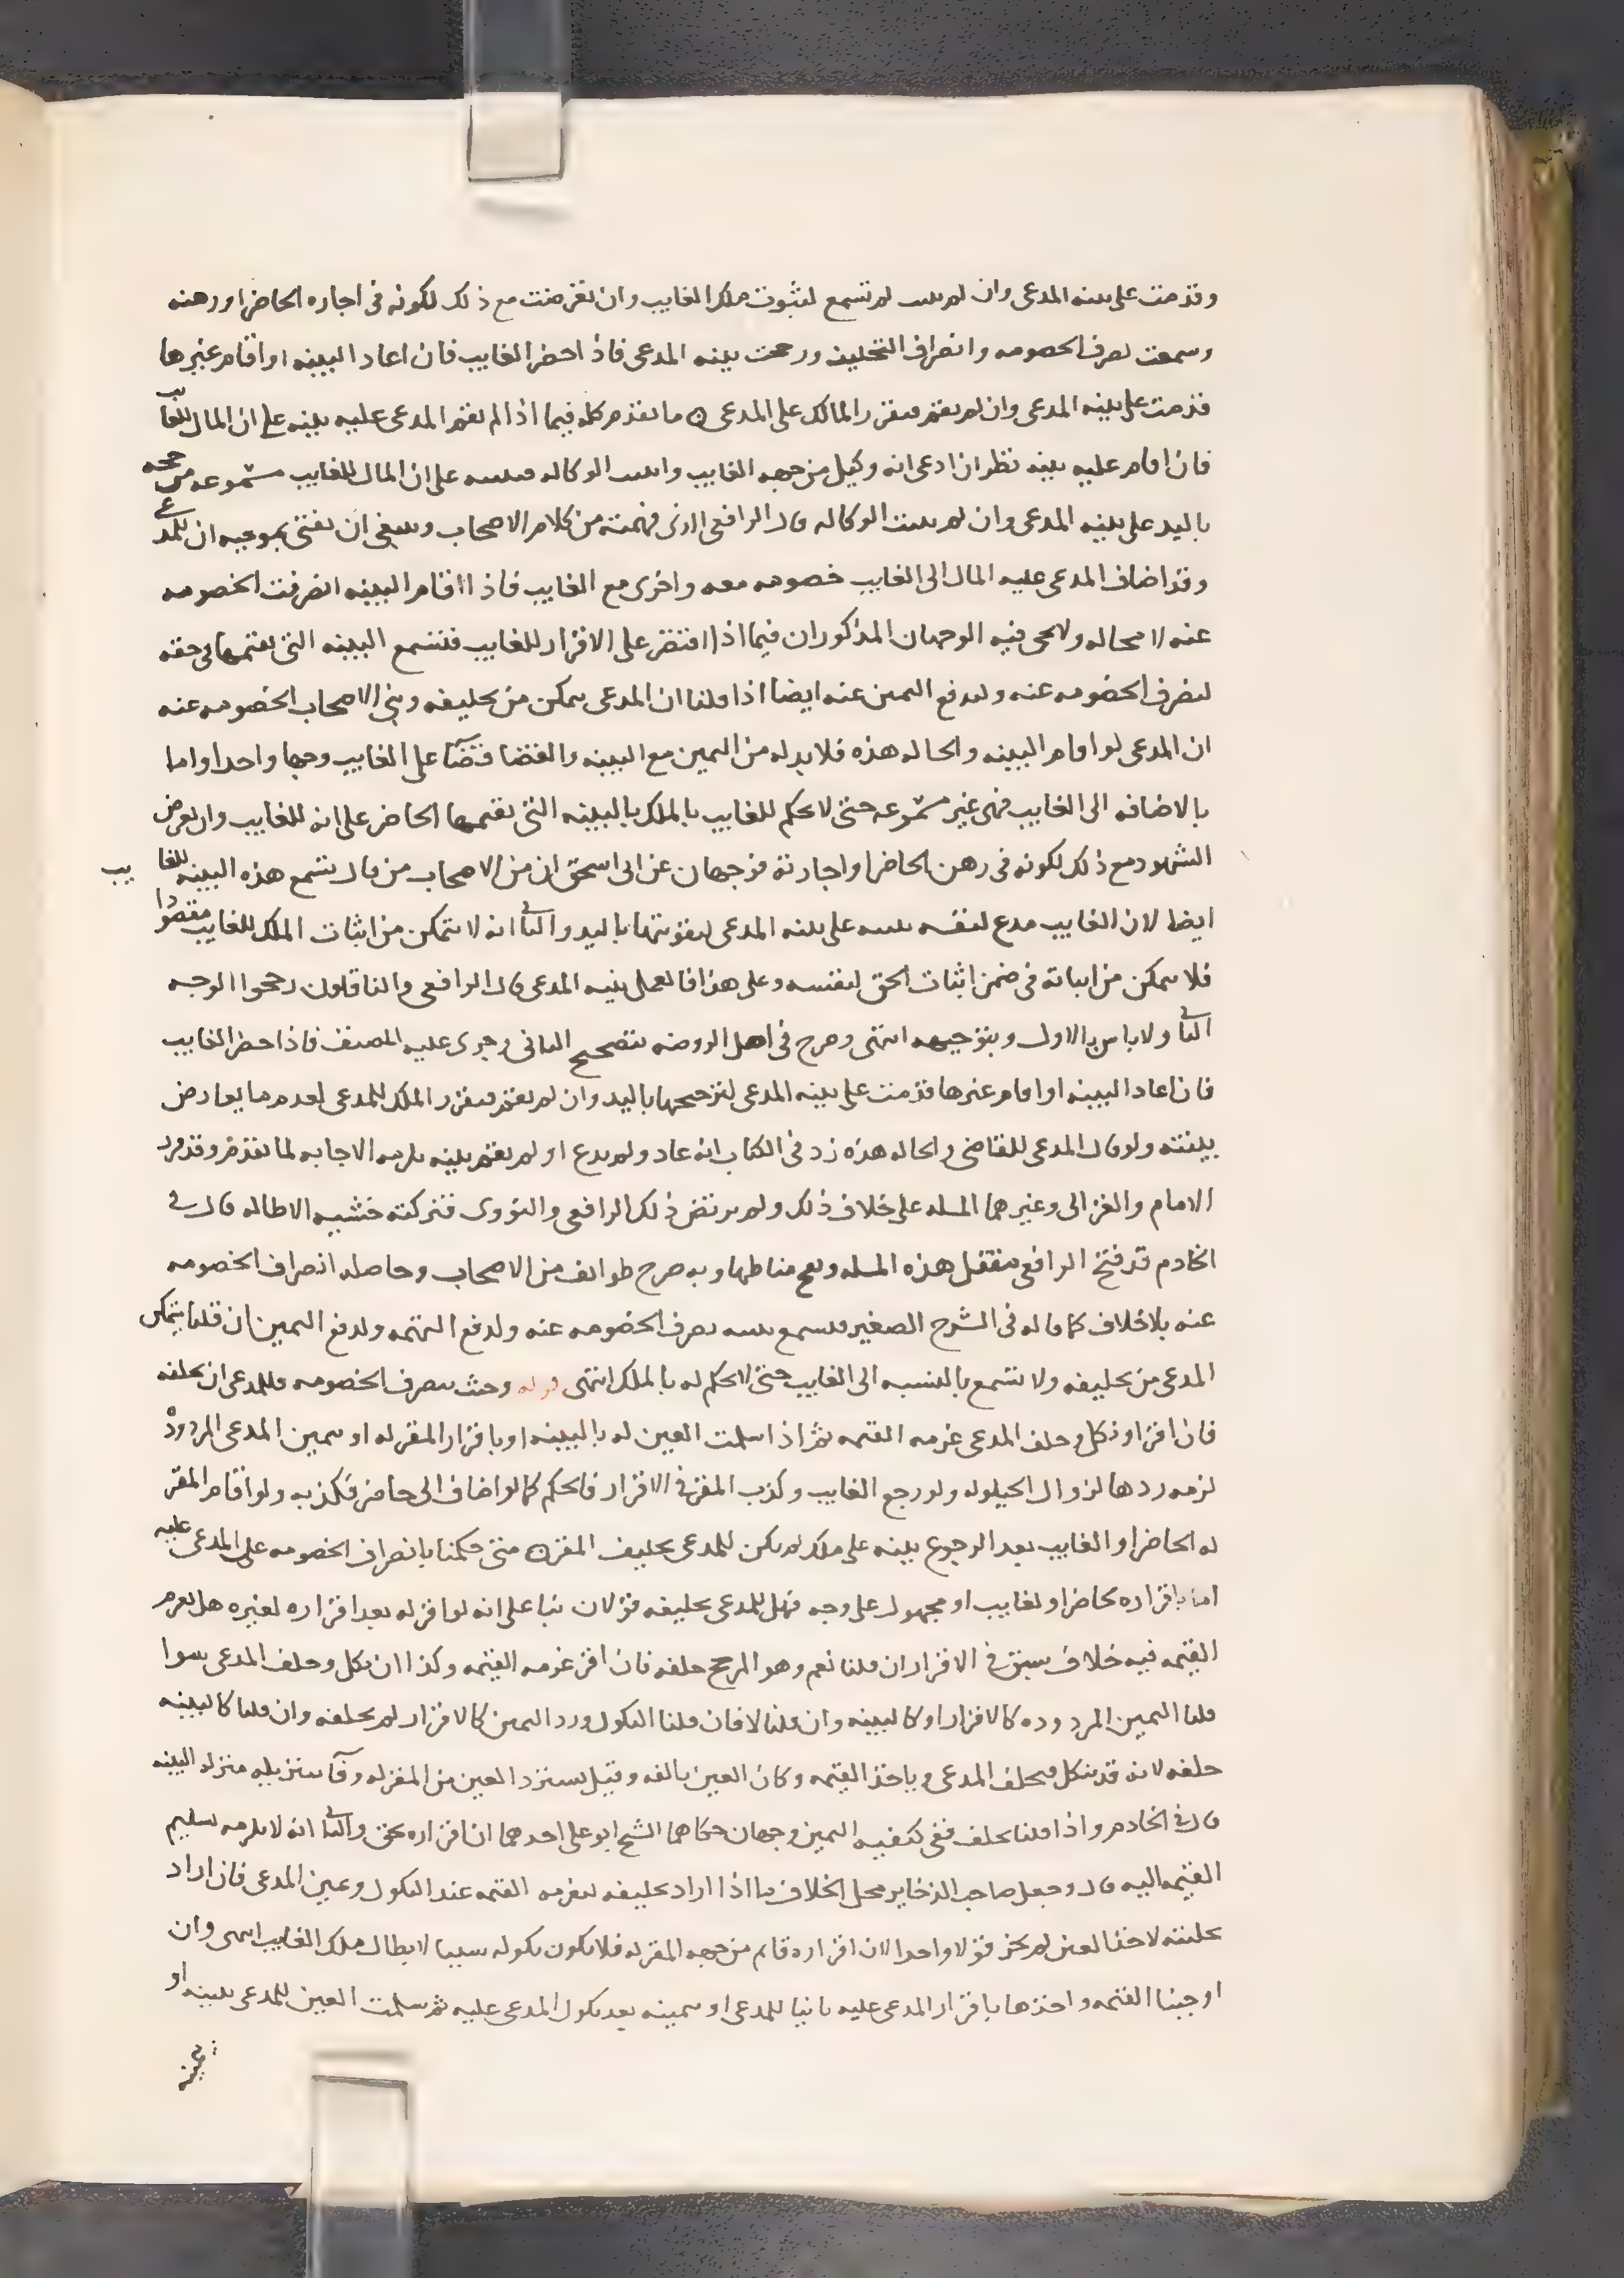 وقدمت على بينه المدعى وان لم يثبت لم تسمع لثبوت ملك الغايب وان تعرضت مع ذلك لكونه فى اجاره الحاضر او رهنه
وسمعت لصرف الخصومه وانصراف التحليف ورجحت بينه المدعى فاذا حضر الغايب فان اعاد البينه او اقام غيرها
قدمت على بينه المدعى وان لم يقم فيقرر المالك على المدعى ما تقدم كله فيما اذا لم يقم المدعى عليه بينه على ان المال للغايب
فان اقام عليه بينه نظر ان ادعى انه وكيل من جهه الغايب واثبت الوكاله فبينته على ان المال للغايب مسموعه مرجحه
باليد على بينه المدعى وان لم يثبت الوكاله قال الرافعى الذى فهمته من كلام الاصحاب وينبغى ان يفتى بموجبه ان للمدعى
وقد اضاف المدعى عليه المال الى الغايب خصومه معه واخرى مع الغايب فاذا اقام البينه انصرفت الخصومه
عنه لا محاله ولا يجى فيه الوجهان المذكوران فيما اذا اقتصر على الاقرار للغايب فتسمع البينه التى يقيمها فى حقه
لتصرف الخصومه عنه ولدفع اليمين عنه ايضا اذا قلنا ان المدعى يتمكن من تحليفه وبنى الاصحاب الخصومه عنه
ان المدعى لو اقام البينه والحاله هذه فلا بد له من اليمين مع البينه والقضا قضآ على الغايب وجها واحدا واما
بالاضافه الى الغايب فهى غير مسموعه حتى لا يحكم للغايب بالملك بالبينه التى يقيمها الحاضر على انه للغايب وان تعرض
الشهود مع ذلك لكونه فى رهن الحاضر او اجارته فوجهان عن ابى اسحق ان من الاصحاب من قال تسمع هذه البينه للغايب
ايضا لان الغايب مدع لنفسه بينته على بينه المدعى لتقويتها باليد والثانى انه لا يتمكن من اثبات الملك للغايب مقصودا
فلا يتمكن من اثباته فى ضمن اثبات الحق لنفسه وعلى هذا فالعمل ببينه المدعى قال الرافعى والناقلون رجحوا الوجه
الثانى ولا باس بالاول وبتوجيهه انتهى وصرح فى اصل الروضه بتصحيح الثانى وجرى عليه المصنف فاذا حضر الغايب
فان اعاد البينه او اقام غيرها قدمت على بينه المدعى لترجيحها باليد وان لم يقم فيقرر الملك للمدعى لعدم ما يعارض
بينته ولو قال المدعى للقاضى والحاله هذه زد فى الكتاب انه عاد ولم يدع او لم يقم بينه يلزمه الاجابه لما تقدم وقد مرد
الامام والغزالى وغيرهما المسله على خلاف ذلك ولم يرتض ذلك الرافعى والنووى فتركته خشيه الاطاله قال فى
الخادم قد فتح الرافعى مقفل هذه المسله ونهج مناطها وبه صرح طوايف من الاصحاب وحاصله انصراف الخصومه
عنه بلا خلاف كما قاله فى الشرح الصغير فتسمع بينته بصرف الخصومه عنه ولدفع التهمه ولدفع اليمين ان قلنا يتمكن
المدعى من تحليفه ولا تسمع بالنسبه الى الغايب حتى لا يحكم له بالملك انتهى قوله وحيث تنصرف الخصومه فللمدعى ان يحلفه
فان اقر او نكل وحلف المدعى غرمه القيمه ثم اذا سلمت العين له بالبينه او باقرار المقر له او يمين المدعى المردوده
لزمه ردها لزوال الحيلوله ولو رجع الغايب وكذب المقر فى الاقرار فالحكم كما لو اضاف الى حاضر فكذبه ولو اقام المقر
له الحاضر او الغايب بعد الرجوع بينه على ملكه لم يكن للمدعى تحليف المقر متى حكمنا بانصراف الخصومه على المدعى عليه
اما باقراره لحاضر او لغايب او مجهول على وجه فهل للمدعى تحليفه قولان بنا على انه لو اقر له بعد اقراره لغيره هل يغرم
القيمه فيه خلاف سبق فى الاقرار ان قلنا نعم وهو المرجح حلفه فان اقر غرمه القيمه وكذا ان نكل وحلف المدعى سوا
قلنا اليمين المردوده كالاقرار او كالبينه وان قلنا لا فان قلنا النكول ورد اليمين كالاقرار لم يحلفه وان قلنا كالبينه
حلفه لانه قد ينكل فيحلف المدعى وياخذ القيمه وكان العين تالفه وقيل يسترد العين من المقر له وفآ بتنزيله منزله البينه
قال فى الخادم واذا قلنا يحلف ففى كيفيه اليمين وجهان حكاهما الشيخ ابو على احدهما ان اقراره بحق والثانى انه لا يلزمه تسليم
القيمه اليه قال وجعل صاحب الذخاير محل الخلاف ما اذا اراد تحليفه لتغريمه القيمه عند النكول وعين المدعى فان اراد
تحليفه لاخذ العين لم يجز قولا واحدا لان اقراره قايم من جهه المقر له فلا يكون نكوله سببا لابطال ملك الغايب انتهى وان
اوجبنا القيمه واخذها باقرار المدعى عليه ثانيا للمدعى او يمينه بعد نكول المدعى عليه ثم سلمت العين للمدعى ببينه او
يمينه